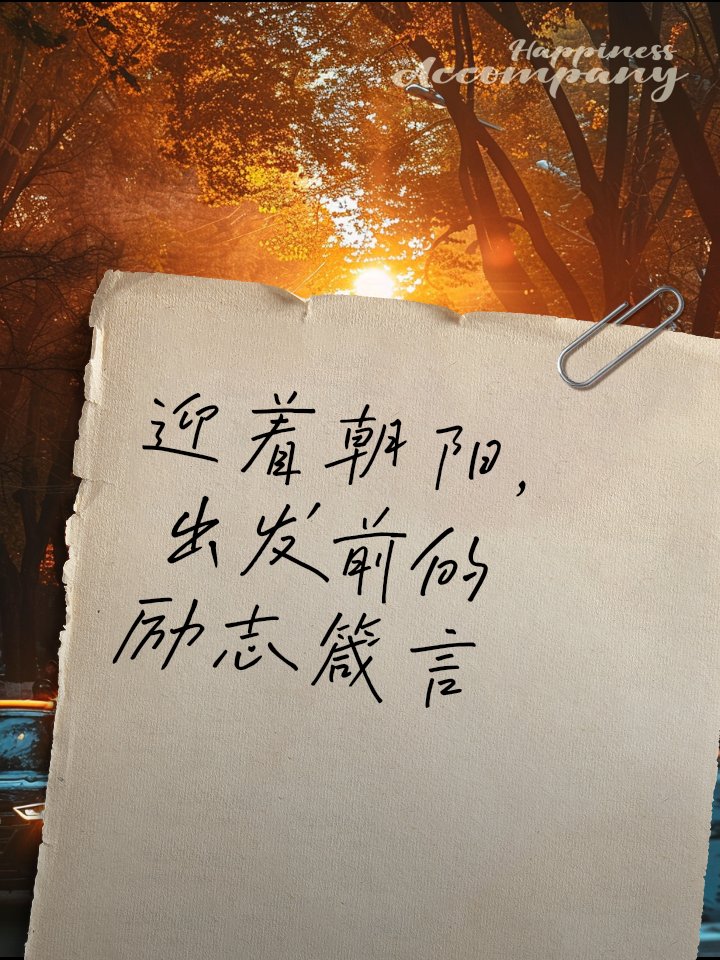 Happiness
Accompany
迎着朝阳，
出发前的
励志箴言